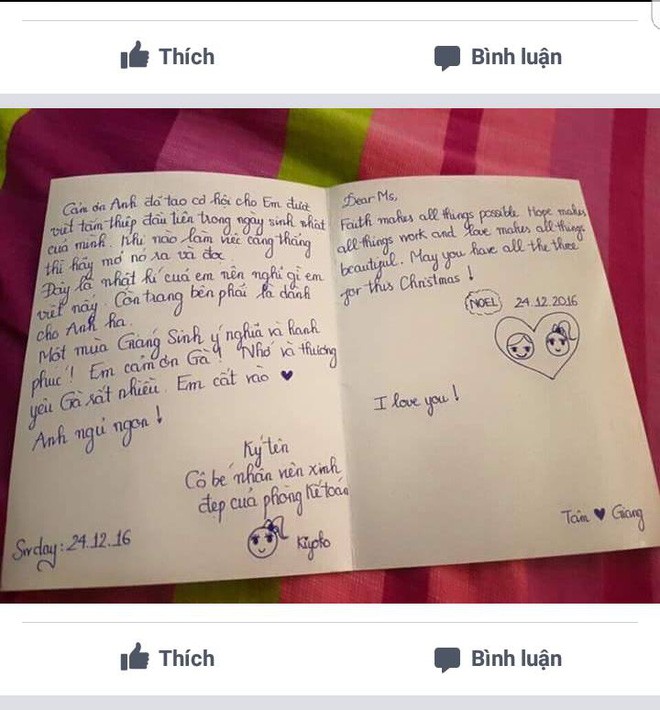 Thích
Bình luận
Cản ơn Anh đã tạo cơ hội cho Em được
viết tấm thiệp đầu tiên trong ngày sinh nhật
của mình. Khi nào làm việc căng thẳng
thì hãy mở nó ra và đọc
Đây là nhật kí của em nên nghĩ gì em
viết nấy. Còn trang bên phải là dành
cho Anh ha.
Một mùa Giáng Sinh ý nghĩa và hạnh
phúc! Em cảm ơn Gà! Nhớ và thương
yêu Gà rất nhiều. Em cất vào ♥
Anh ngủ ngon!
Ký tên
Cô bé nhân viên xinh
đẹp của phòng Kế toán
Kiyoko
24.12.16
Dear Ms,
Faith makes all things possible. Hope makes
all things work and love makes all things
beautiful. May you have all the three
for this Christmas!
NOEL 24.12.2016
I love you!
Tâm ♥ Giang
Thích
Bình luận